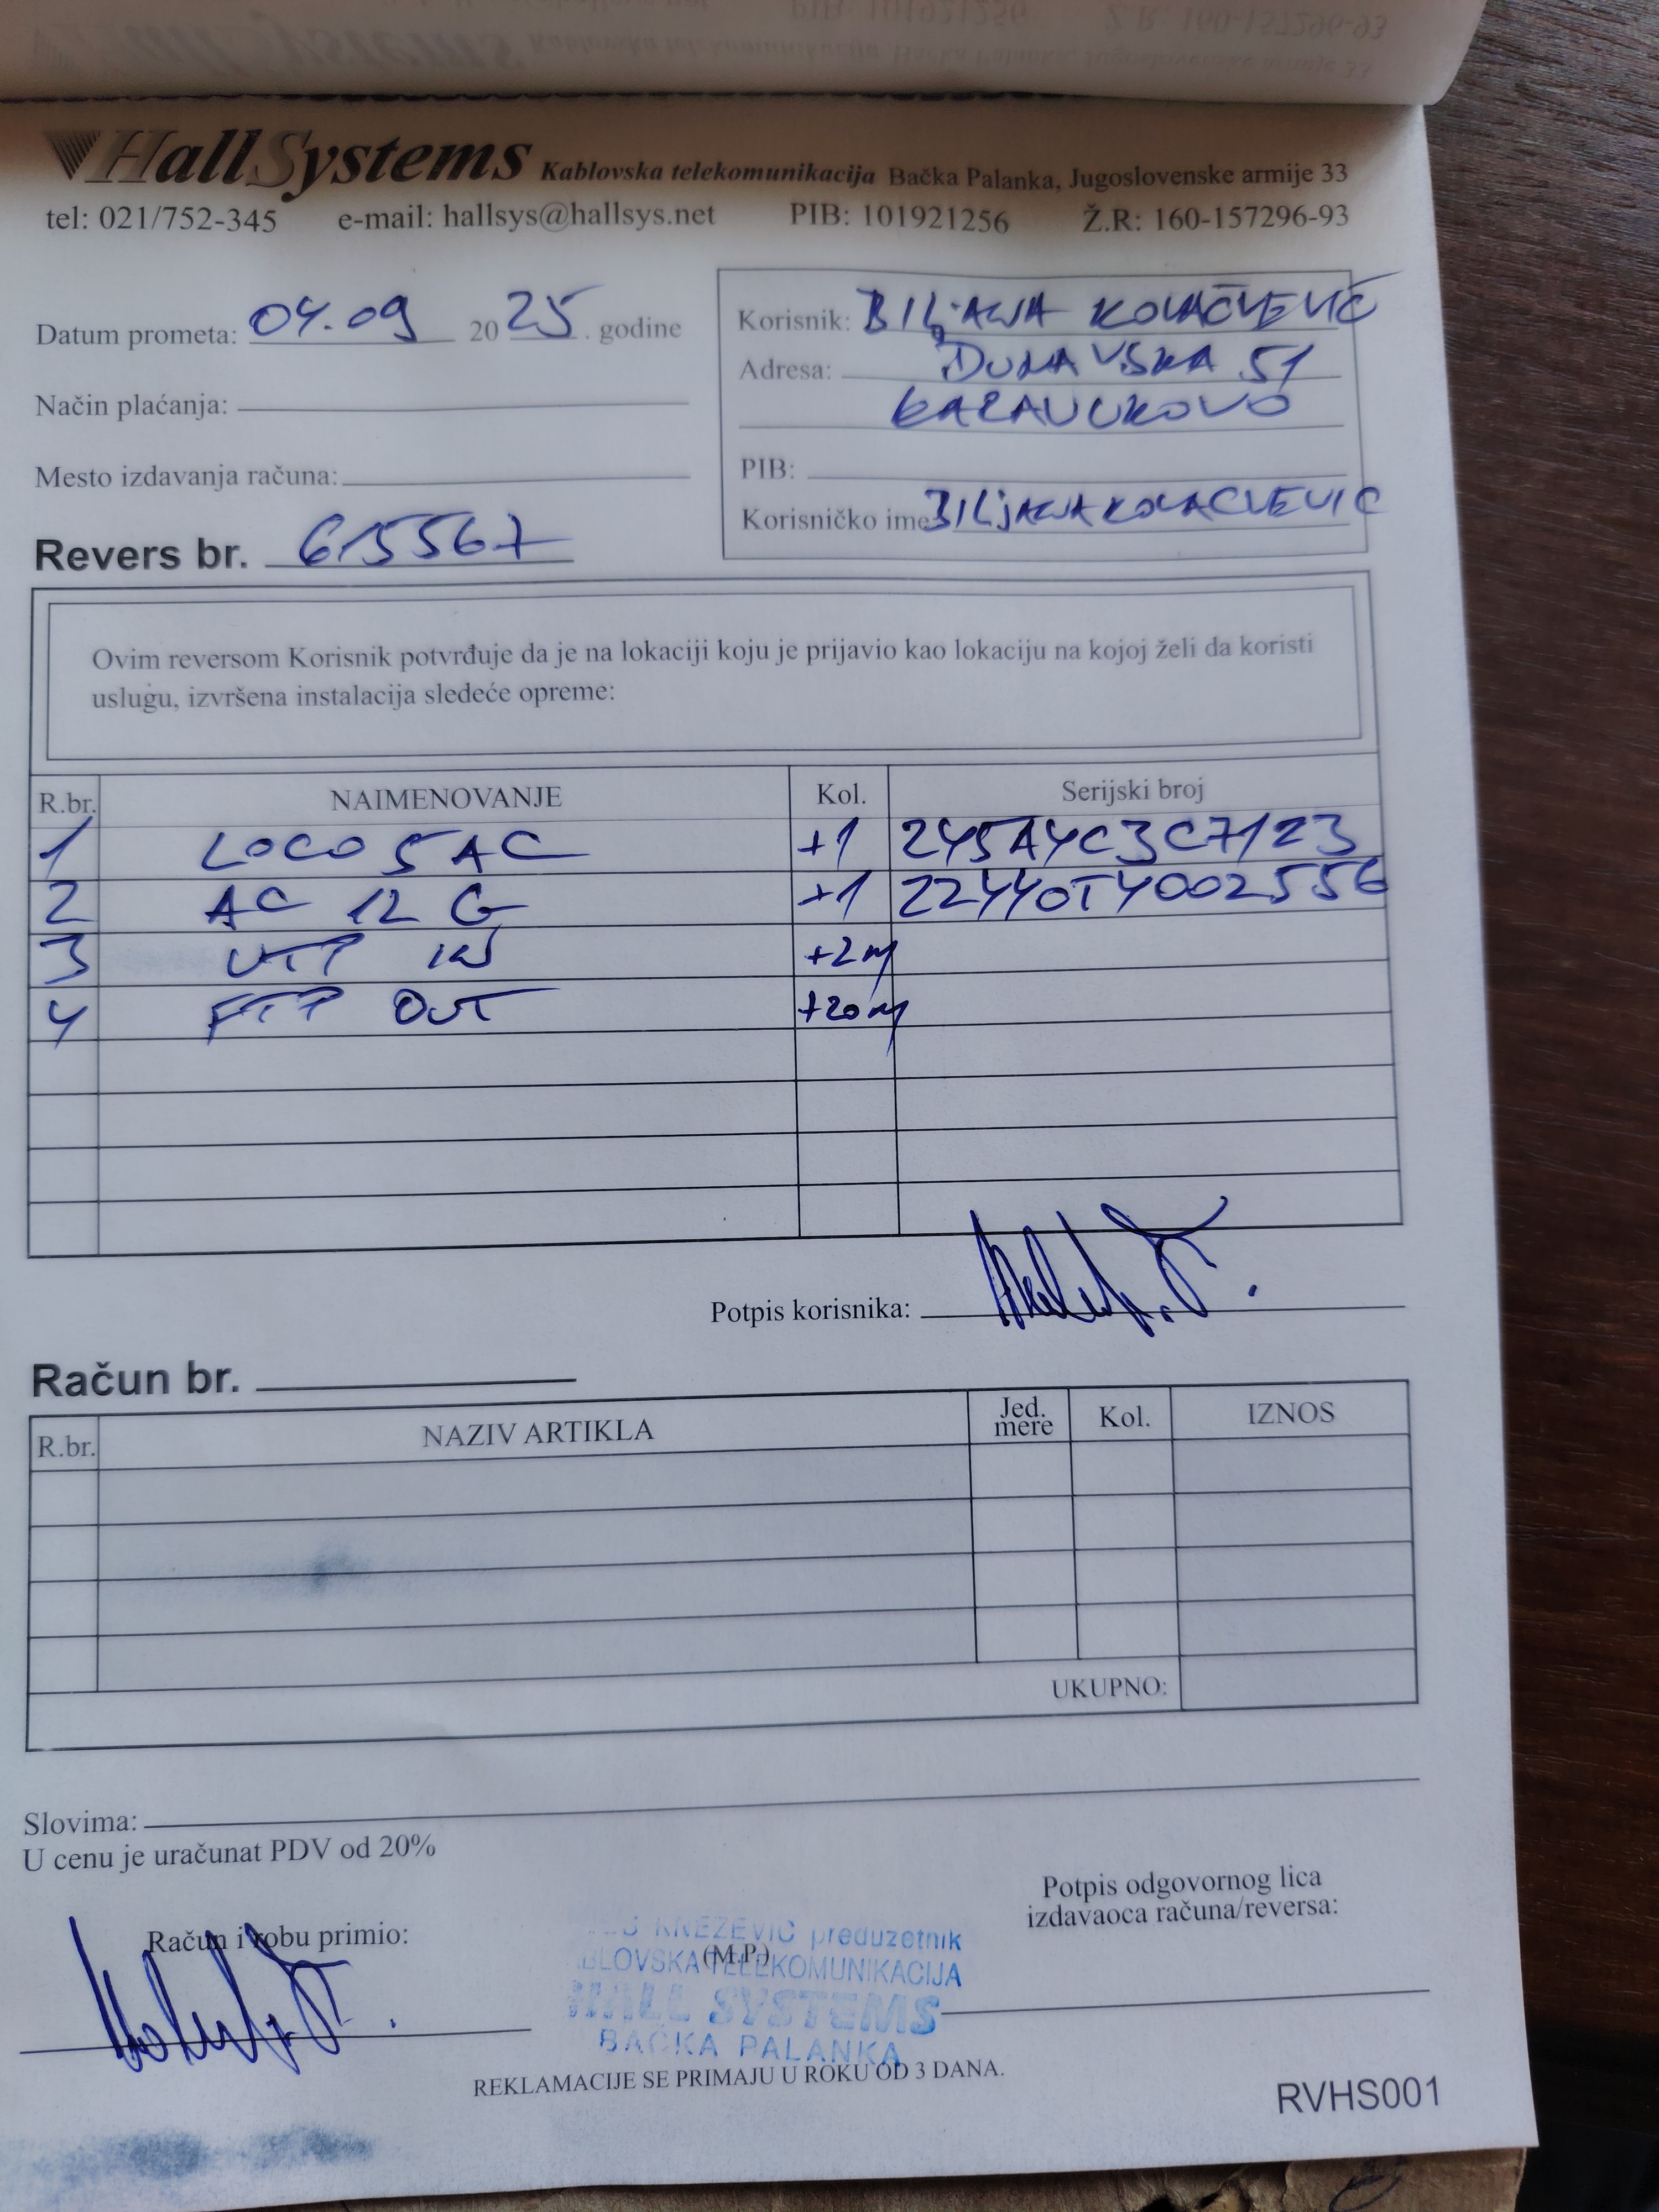 HallSystems Kablovska telekomunikacija Bačka Palanka, Jugoslovenske armije 33
tel: 021/752-345 e-mail: hallsys@hallsys.net PIB: 101921256 Ž.R: 160-157296-93
Datum prometa: 04.09 2025. godine
Način plaćanja:
Mesto izdavanja računa:
Revers br. 615567
Korisnik: BILJANA KOVAČEVIĆ
Adresa: DUNAVSKA 51
KARAVUKOVO
PIB:
Korisničko ime BILJANAKOVACEVIC
Ovim reversom Korisnik potvrđuje da je na lokaciji koju je prijavio kao lokaciju na kojoj želi da koristi
uslugu, izvršena instalacija sledeće opreme:
R.br. NAIMENOVANJE Kol. Serijski broj
1 LOCO 5 AC +1 245A4C3C7123
2 AC 12 G +1 22440T4002556
3 UTP IN +2m
4 FTP OUT +20m
Potpis korisnika:
Račun br.
R.br. NAZIV ARTIKLA Jed. mere Kol. IZNOS
UKUPNO:
Slovima:
U cenu je uračunat PDV od 20%
Račun i robu primio:
(M.P.)
Potpis odgovornog lica
izdavaoca računa/reversa:
KNEZEVIC preduzetnik
BLOVSKA TELEKOMUNIKACIJA
HALL SYSTEMS
BAČKA PALANKA
REKLAMACIJE SE PRIMAJU U ROKU OD 3 DANA.
RVHS001